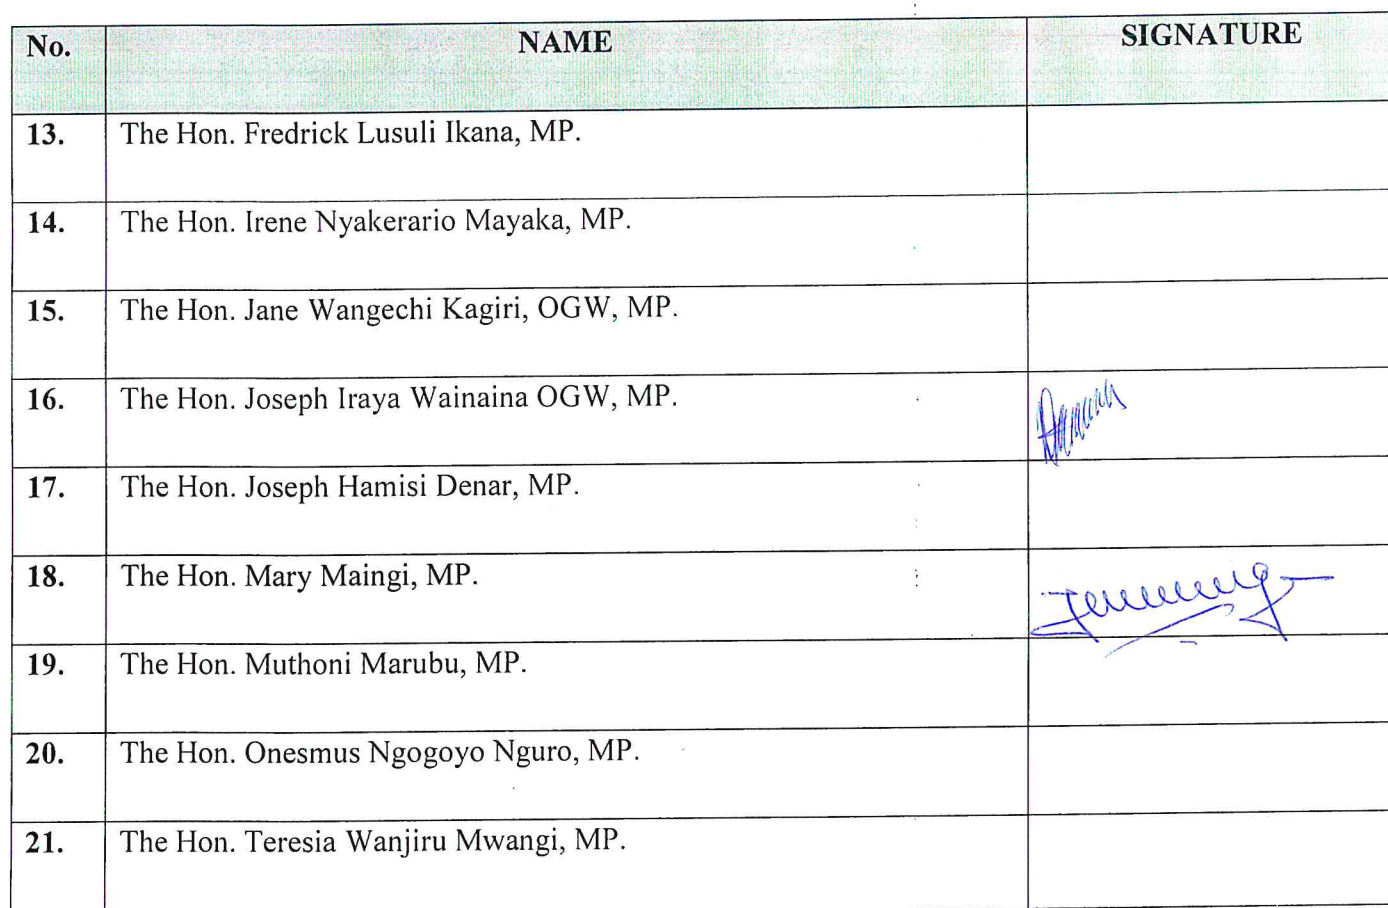 No. NAME SIGNATURE
13. The Hon. Fredrick Lusuli Ikana, MP.
14. The Hon. Irene Nyakerario Mayaka, MP.
15. The Hon. Jane Wangechi Kagiri, OGW, MP.
16. The Hon. Joseph Iraya Wainaina OGW, MP.
17. The Hon. Joseph Hamisi Denar, MP.
18. The Hon. Mary Maingi, MP.
19. The Hon. Muthoni Marubu, MP.
20. The Hon. Onesmus Ngogoyo Nguro, MP.
21. The Hon. Teresia Wanjiru Mwangi, MP.